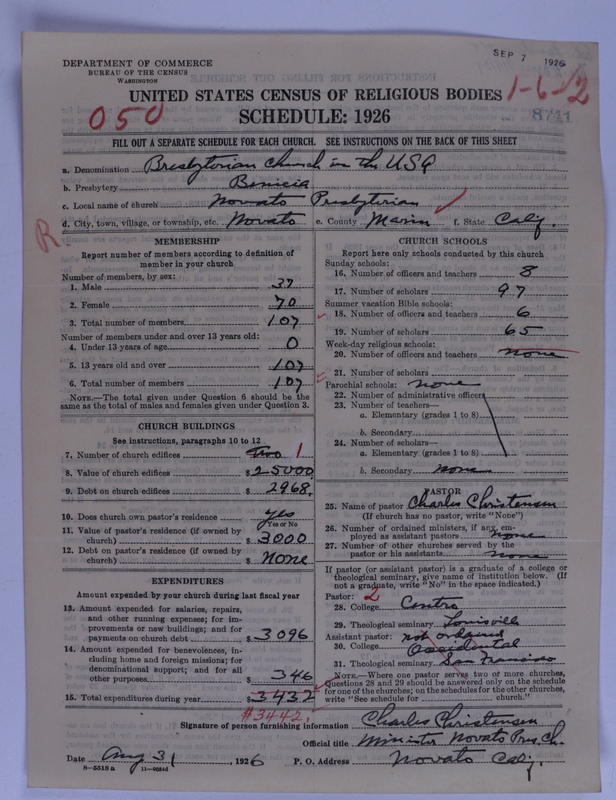 SEP 7 1926
DEPARTMENT OF COMMERCE
BUREAU OF THE CENSUS
WASHINGTON
UNITED STATES CENSUS OF RELIGIOUS BODIES
1-6-2
050
SCHEDULE: 1926
8711
FILL OUT A SEPARATE SCHEDULE FOR EACH CHURCH. SEE INSTRUCTIONS ON THE BACK OF THIS SHEET
a. Denomination Presbyterian Church in the USA
b. Presbytery Benicia
c. Local name of church Novato Presbyterian
d. City, town, village, or township, etc. Novato e. County Marin f. State Calif.
R
MEMBERSHIP
Report number of members according to definition of
member in your church
Number of members, by sex:
1. Male 37
2. Female 70
3. Total number of members 107
Number of members under and over 13 years old:
4. Under 13 years of age 0
5. 13 years old and over 107
6. Total number of members 107
NOTE.—The total given under Question 6 should be the
same as the total of males and females given under Question 3.
CHURCH BUILDINGS
See instructions, paragraphs 10 to 12
7. Number of church edifices two 1
8. Value of church edifices $ 25000
9. Debt on church edifices $ 2968.
10. Does church own pastor's residence yes
Yes or No
11. Value of pastor's residence (if owned by
church) $ 3000
12. Debt on pastor's residence (if owned by
church) $ None
EXPENDITURES
Amount expended by your church during last fiscal year
13. Amount expended for salaries, repairs,
and other running expenses; for im-
provements or new buildings; and for
payments on church debt $ 3096
14. Amount expended for benevolences, in-
cluding home and foreign missions; for
denominational support; and for all
other purposes $ 346
15. Total expenditures during year $ 3432
$3442.
CHURCH SCHOOLS
Report here only schools conducted by this church
Sunday schools:
16. Number of officers and teachers 8
17. Number of scholars 97
Summer vacation Bible schools:
18. Number of officers and teachers 6
19. Number of scholars 65
Week-day religious schools:
20. Number of officers and teachers none
21. Number of scholars
Parochial schools: none
22. Number of administrative officers
23. Number of teachers—
a. Elementary (grades 1 to 8)
b. Secondary
24. Number of scholars—
a. Elementary (grades 1 to 8)
b. Secondary none
PASTOR
25. Name of pastor Charles Christensen
(If church has no pastor, write "None")
26. Number of ordained ministers, if any, em-
ployed as assistant pastors none
27. Number of other churches served by the
pastor or his assistants none
If pastor (or assistant pastor) is a graduate of a college or
theological seminary, give name of institution below. (If
not a graduate, write "No" in the space indicated.)
Pastor: 2
28. College Centre
29. Theological seminary Louisville
Assistant pastor: not ordained
30. College Occidental
31. Theological seminary San Francisco
NOTE.—Where one pastor serves two or more churches,
Questions 28 and 29 should be answered only on the schedule
for one of the churches; on the schedules for the other churches,
write "See schedule for church."
Signature of person furnishing information Charles Christensen
Official title Minister Novato Pres. Ch.
Date Aug 31, 1926 P. O. Address Novato Calif.
8—5518 a